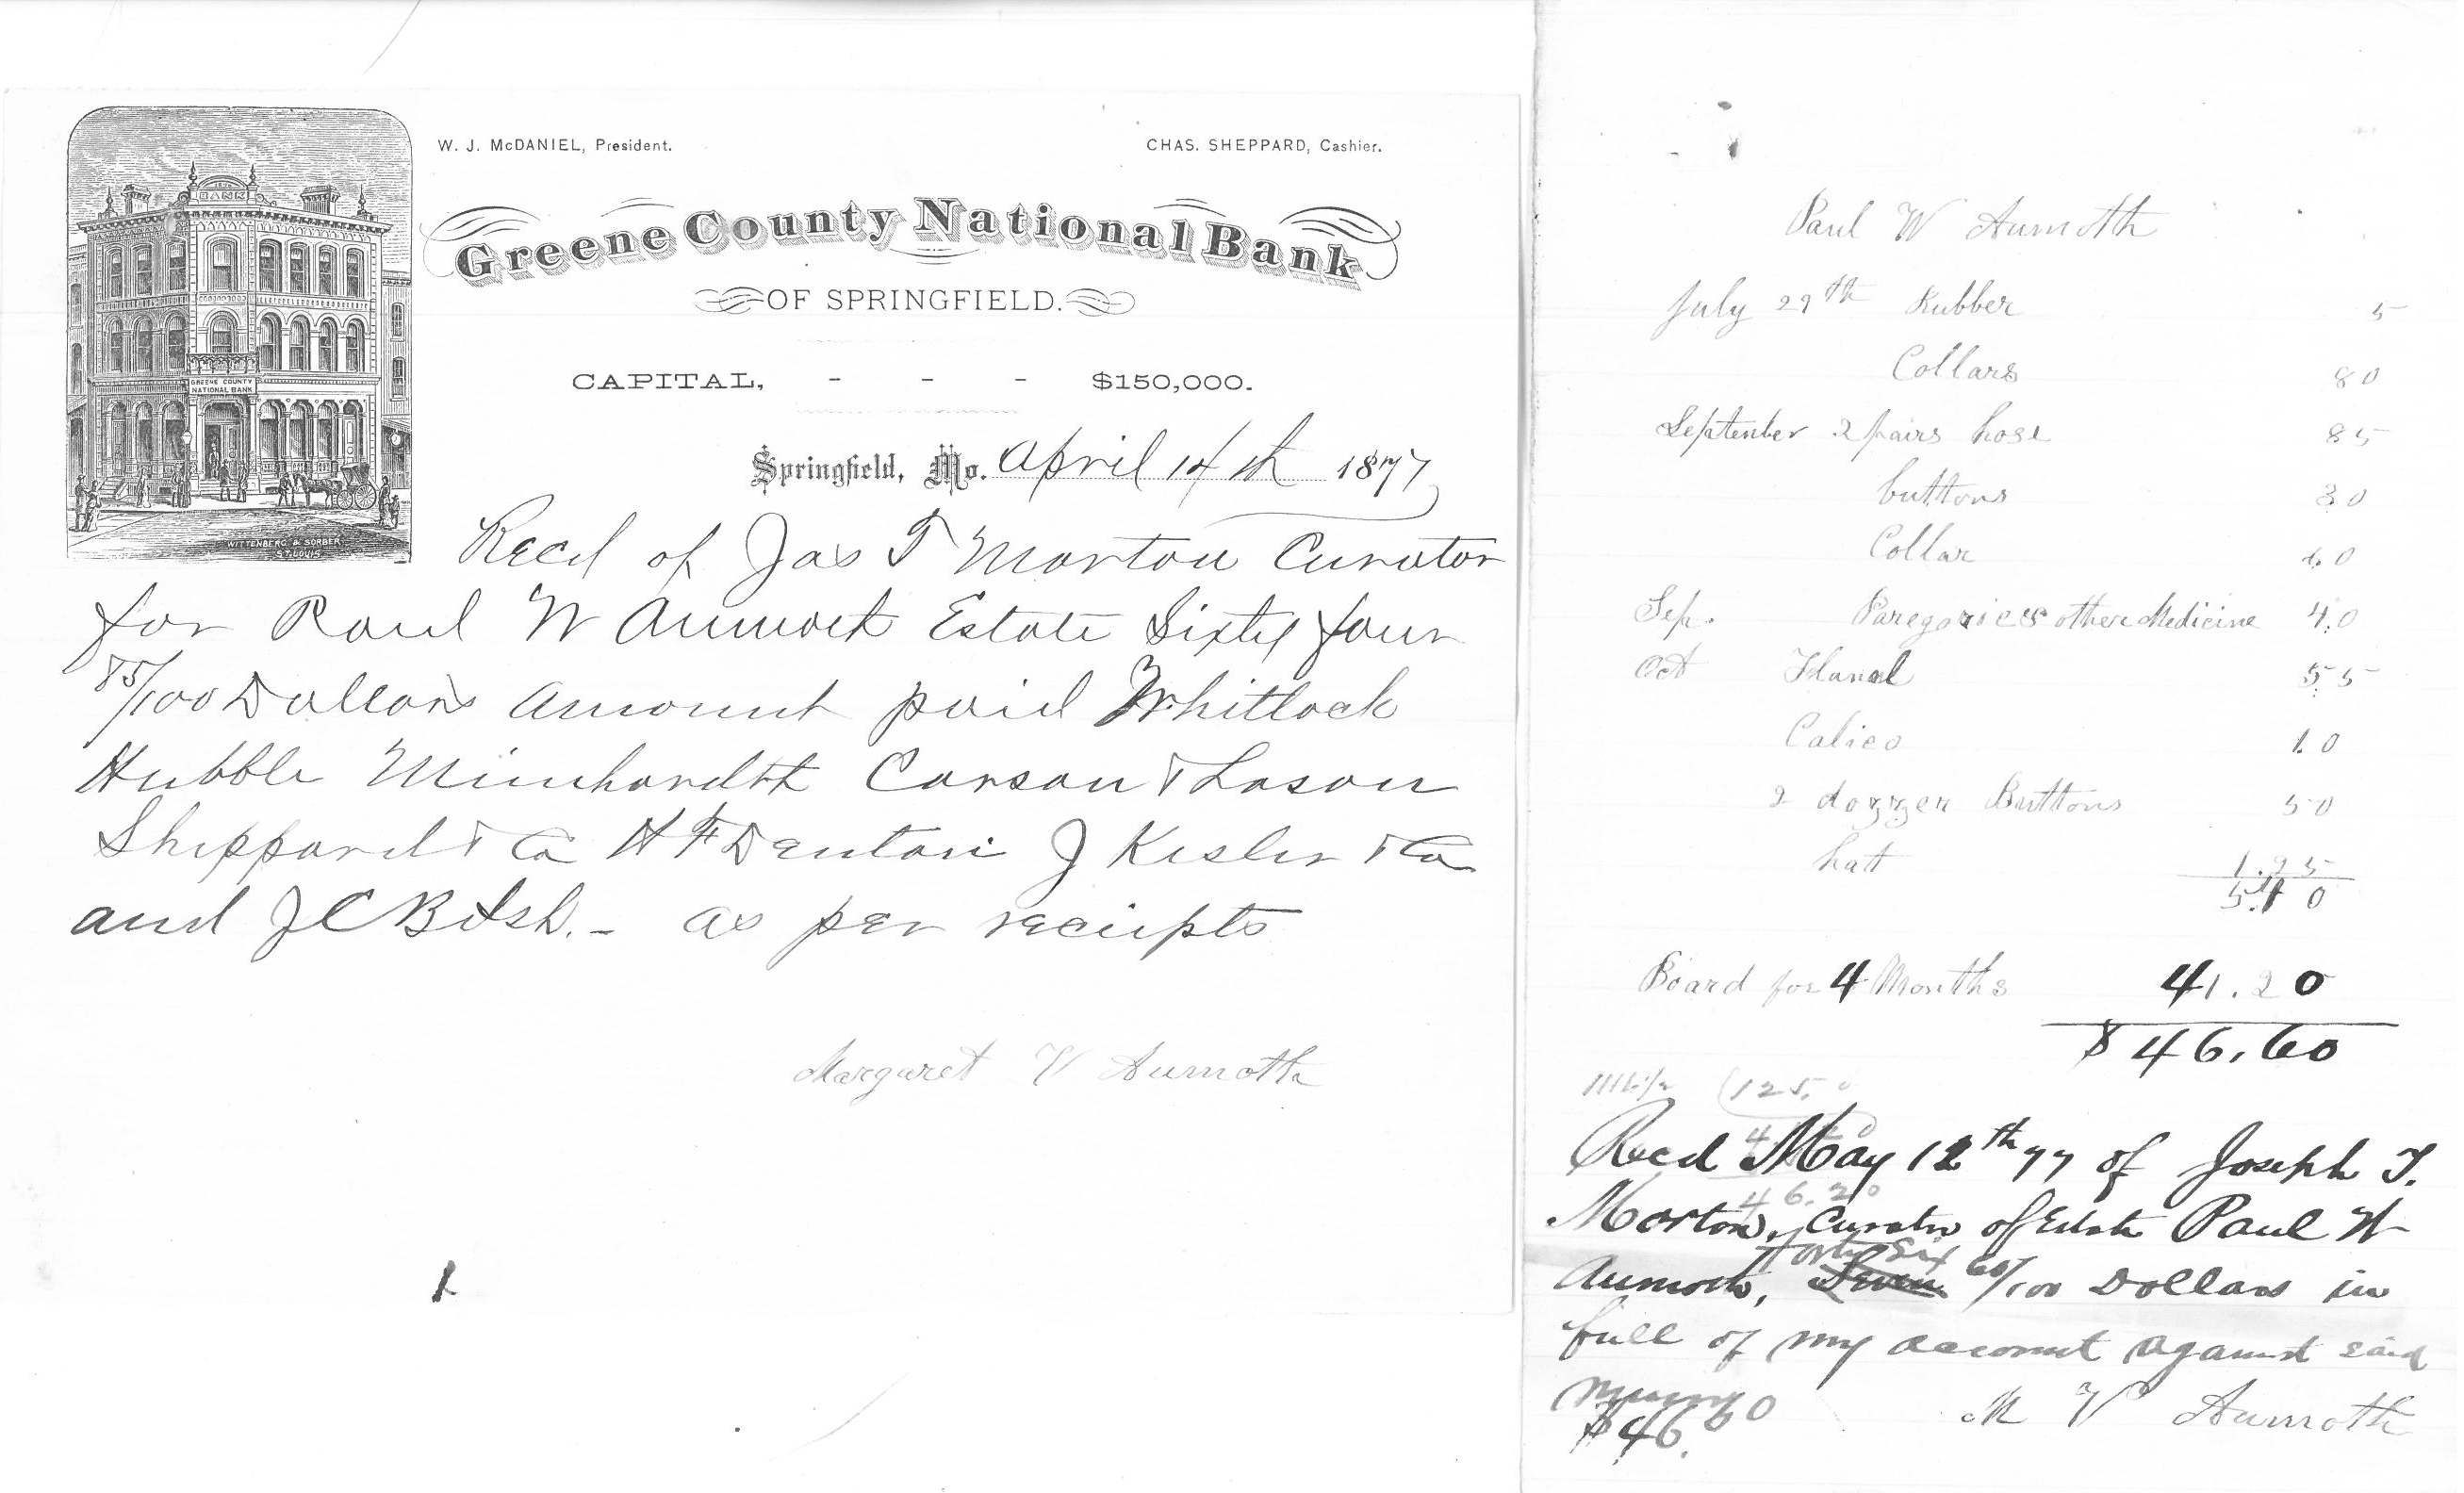 W. J. McDANIEL, President.
CHAS. SHEPPARD, Cashier.
BANK
GREENE COUNTY
NATIONAL BANK
WITTENBERG & SORBER
ST. LOUIS
Greene County National Bank
OF SPRINGFIELD.
CAPITAL, - - - $150,000.
Springfield, Mo. April 14th 1877
Recd of Jas T Morton Curator
for Paul W Aumoth Estate Sixty four
85/100 Dollars amount paid Whitlock
Hubble Minhardth Carson & Lason
Sheppard & Co H F Denton J Kesler & Co
and J C Bush. - as per reciepts
Margaret V Aumoth
Paul W Aumoth
July 29th Rubber 5
Collars 80
September 2 pairs hose 85
buttons 30
Collar 60
Sep. Paregoric & other Medicine 40
Oct Flanel 55
Calico 10
2 dozzen Buttons 50
hat 1.25
5.40
Board for 4 Months 41.20
$46.60
(125.0
46.20
Recd May 12th 77 of Joseph T.
Morton, Curator of Estate Paul W
Forty Six
Aumoth, Seven 60/100 Dollars in
full of my account against said
$46.60
M V Aumoth